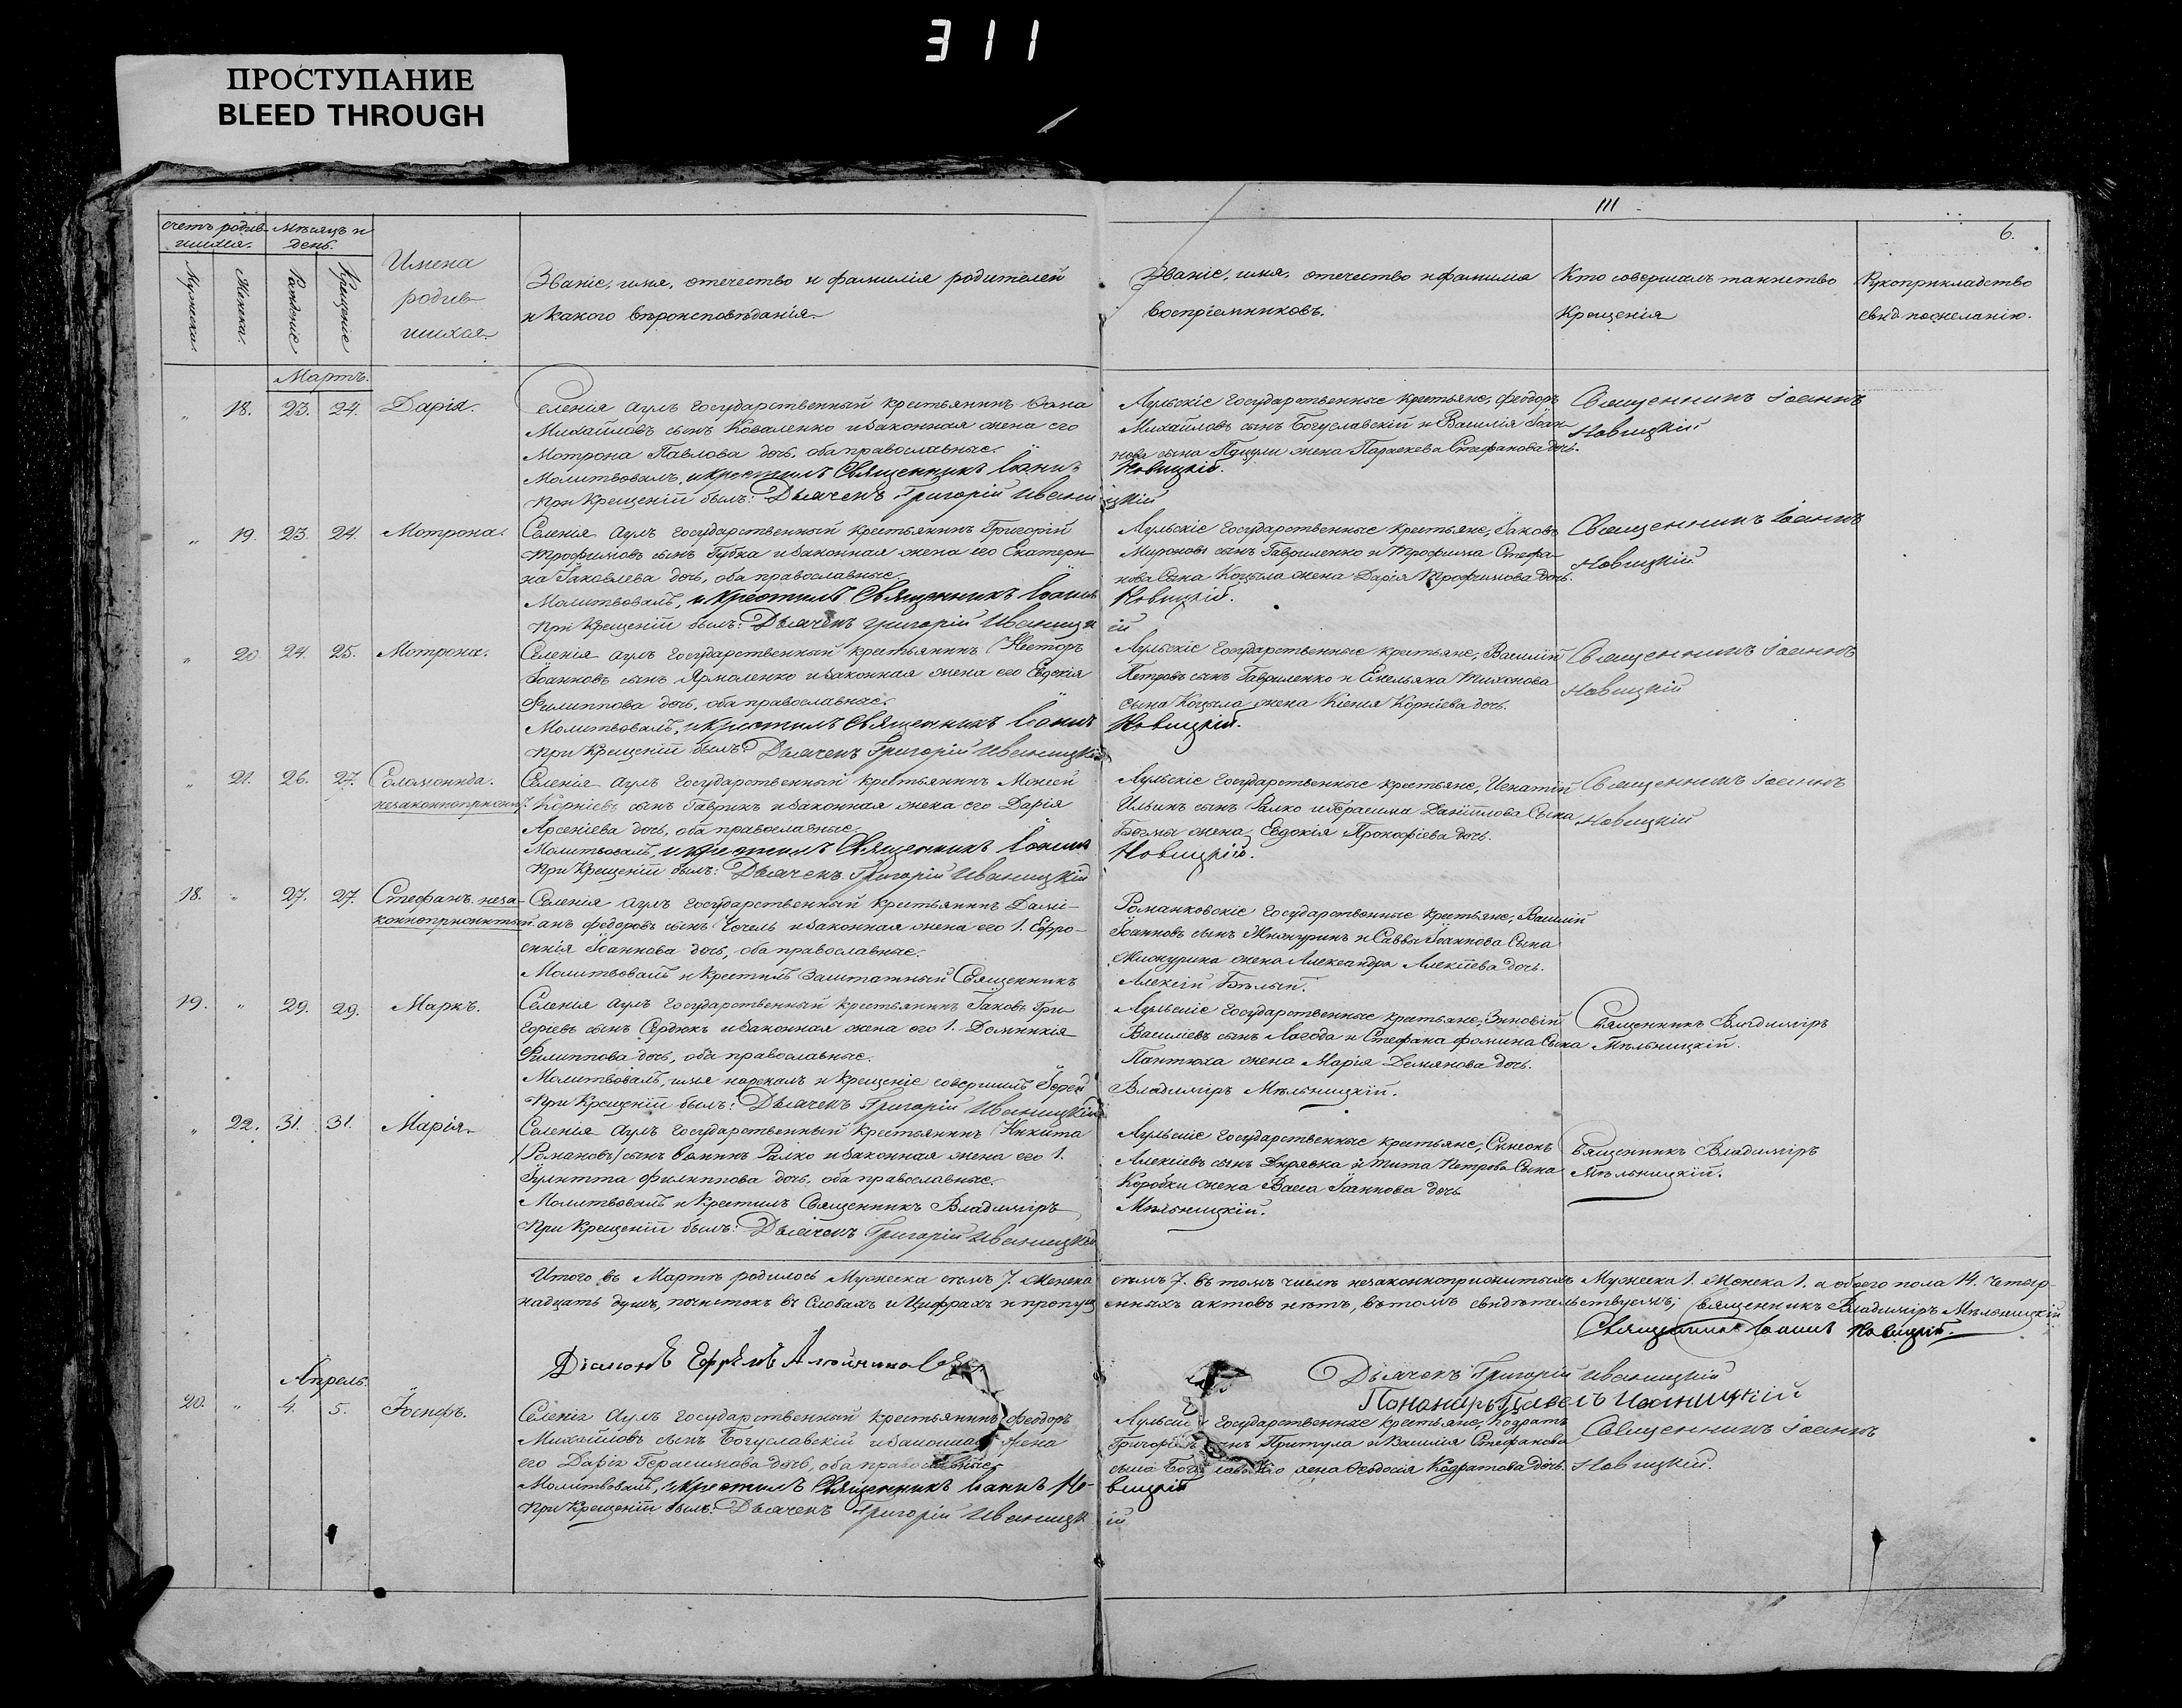 311
ПРОСТУПАНИЕ
BLEED THROUGH
111
6.
Счетъ родив-
шихся.
Мѣсяцъ и
день.
Мужеска.
Женска.
Рожденіе
Крещеніе
Имена
родив-
шихся.
Званіе, имя, отечество и фамилія родителей
и какого вѣроисповѣданія.
Званіе, имя, отечество и фамилія
воспріемниковъ.
Кто совершалъ таинство
Крещенія
Рукоприкладство
свид. по желанію.
Мартъ.
" 18. 23. 24. Дарія.
Селенія Аулъ государственный крестьянинъ
Михайловъ сынъ Коваленко и законная жена его
Мотрона Павлова дочь, оба православные.
Молитвовалъ, и крестилъ Священникъ Іоаннъ
При Крещеніи былъ: Дьячекъ Григорій Иваниц
Аульскіе государственные крестьяне, Феодоръ
Михайловъ сынъ Богуславскій и Василія Іоан-
нова сына жена Параскева Стефанова дочь.
Новицкій.
цкій
Священникъ Іоаннъ
Новицкій
" 19. 23. 24. Мотрона.
Селенія Аулъ государственный крестьянинъ Григорій
Трофимовъ сынъ Губка и законная жена его Екатери-
на Іаковлева дочь, оба православные.
Молитвовалъ, и крестилъ Священникъ Іоаннъ
При Крещеніи былъ: Дьячекъ Григорій Иваницк
Аульскіе государственные крестьяне, Іаковъ
Мироновъ сынъ Гавриленко и Трофима Стефа-
нова Сына Коцыла жена Дарія Трофимова дочь.
Новицкій.
ій
Священникъ Іоаннъ
Новицкій
" 20. 24. 25. Мотрона.
Селенія Аулъ государственный крестьянинъ Несторъ
Іоанновъ сынъ Ярмоленко и законная жена его Евдокія
Филиппова дочь, оба православные.
Молитвовалъ, и крестилъ Священникъ Іоаннъ
При Крещеніи былъ: Дьячекъ Григорій Иваницкій
Аульскіе государственные крестьяне, Василій
Петровъ сынъ Гавриленко и Емельяна Тихонова
сына Коцыла жена Ксенія Корніева дочь.
Новицкій.
Священникъ Іоаннъ
Новицкій
" 21. 26. 27. Соломонида.
незаконноприжит.
Селенія Аулъ государственный крестьянинъ Моисей
Корніевъ сынъ Гаврикъ и законная жена его Дарія
Арсеніева дочь, оба православные.
Молитвовалъ, и крестилъ Священникъ Іоаннъ
При Крещеніи былъ: Дьячекъ Григорій Иваницкій
Аульскіе государственные крестьяне, Игнатій
Ильинъ сынъ Ралко и Герасима Даніилова Сына
жена Евдокія Прокофіева дочь.
Новицкій.
Священникъ Іоаннъ
Новицкій
18. " 27. 27. Стефанъ. неза-
конноприжитый.
Селенія Аулъ государственный крестьянинъ Даміа-
анъ Федоровъ сынъ Чогель и законная жена его 1. Ефро-
синія Іоаннова дочь, оба православные.
Молитвовалъ и крестилъ заштатный Священникъ
Романковскіе государственные крестьяне, Василій
Іоанновъ сынъ Мижуринъ и Саввы Іоаннова Сына
Мижурина жена Александра Алексіева дочь.
Алексій Бѣлый.
19. " 29. 29. Маркъ.
Селенія Аулъ государственный крестьянинъ Іаковъ Гри-
горіевъ сынъ Сердюкъ и законная жена его 1. Домникія
Филиппова дочь, оба православные.
Молитвовалъ, имя нарекалъ и крещеніе совершилъ Іерей
При Крещеніи былъ: Дьячекъ Григорій Иваницкій
Аульскіе государственные крестьяне, Зиновій
Василіевъ сынъ Лагода и Стефана Фомина Сына
Пантюха жена Марія Демянова дочь.
Владиміръ Мѣльницкій.
Священникъ Владиміръ
Мѣльницкій.
" 22. 31. 31. Марія.
Селенія Аулъ государственный крестьянинъ Никита
Романовъ сынъ Ралко и законная жена его 1.
Іулитта Филиппова дочь, оба православные.
Молитвовалъ и крестилъ Священникъ Владиміръ
При Крещеніи былъ: Дьячекъ Григорій Иваницкій
Аульскіе государственные крестьяне, Симеонъ
Алексіевъ сынъ Дирявка и Тита Петрова Сына
Коробки жена Васса Іоаннова дочь
Мѣльницкій.
Священникъ Владиміръ
Мѣльницкій.
Итого въ Мартѣ родилось Мужеска семь 7. Женска семь 7. въ томъ числѣ незаконноприжитыхъ Мужеска 1. Женска 1. а обоего пола 14. четыр-
надцать душъ, почистокъ въ Словахъ и Цифрахъ и пропущенныхъ актовъ нѣтъ, въ томъ свидѣтельствуемъ; Священникъ Владиміръ Мѣльницкій
Священникъ Іоаннъ Новицкій.
Діаконъ Ефремъ
Дьячекъ Григорій Иваницкій
Пономарь Павелъ Иваницкій
Апрель.
20. " 4. 5. Іосифъ.
Селенія Аулъ государственный крестьянинъ Феодоръ
Михайловъ сынъ Богуславскій и законная жена
его Дарія Герасимова дочь, оба православные.
Молитвовалъ, и крестилъ Священникъ Іоаннъ Но-
При Крещеніи былъ: Дьячекъ Григорій Иваницк
Аульскіе государственные крестьяне, Кодратъ
Григоріевъ сынъ Притула и Василія Стефанова
сына жена Феодосія Кодратова дочь.
вицкій
ій
Священникъ Іоаннъ
Новицкій.